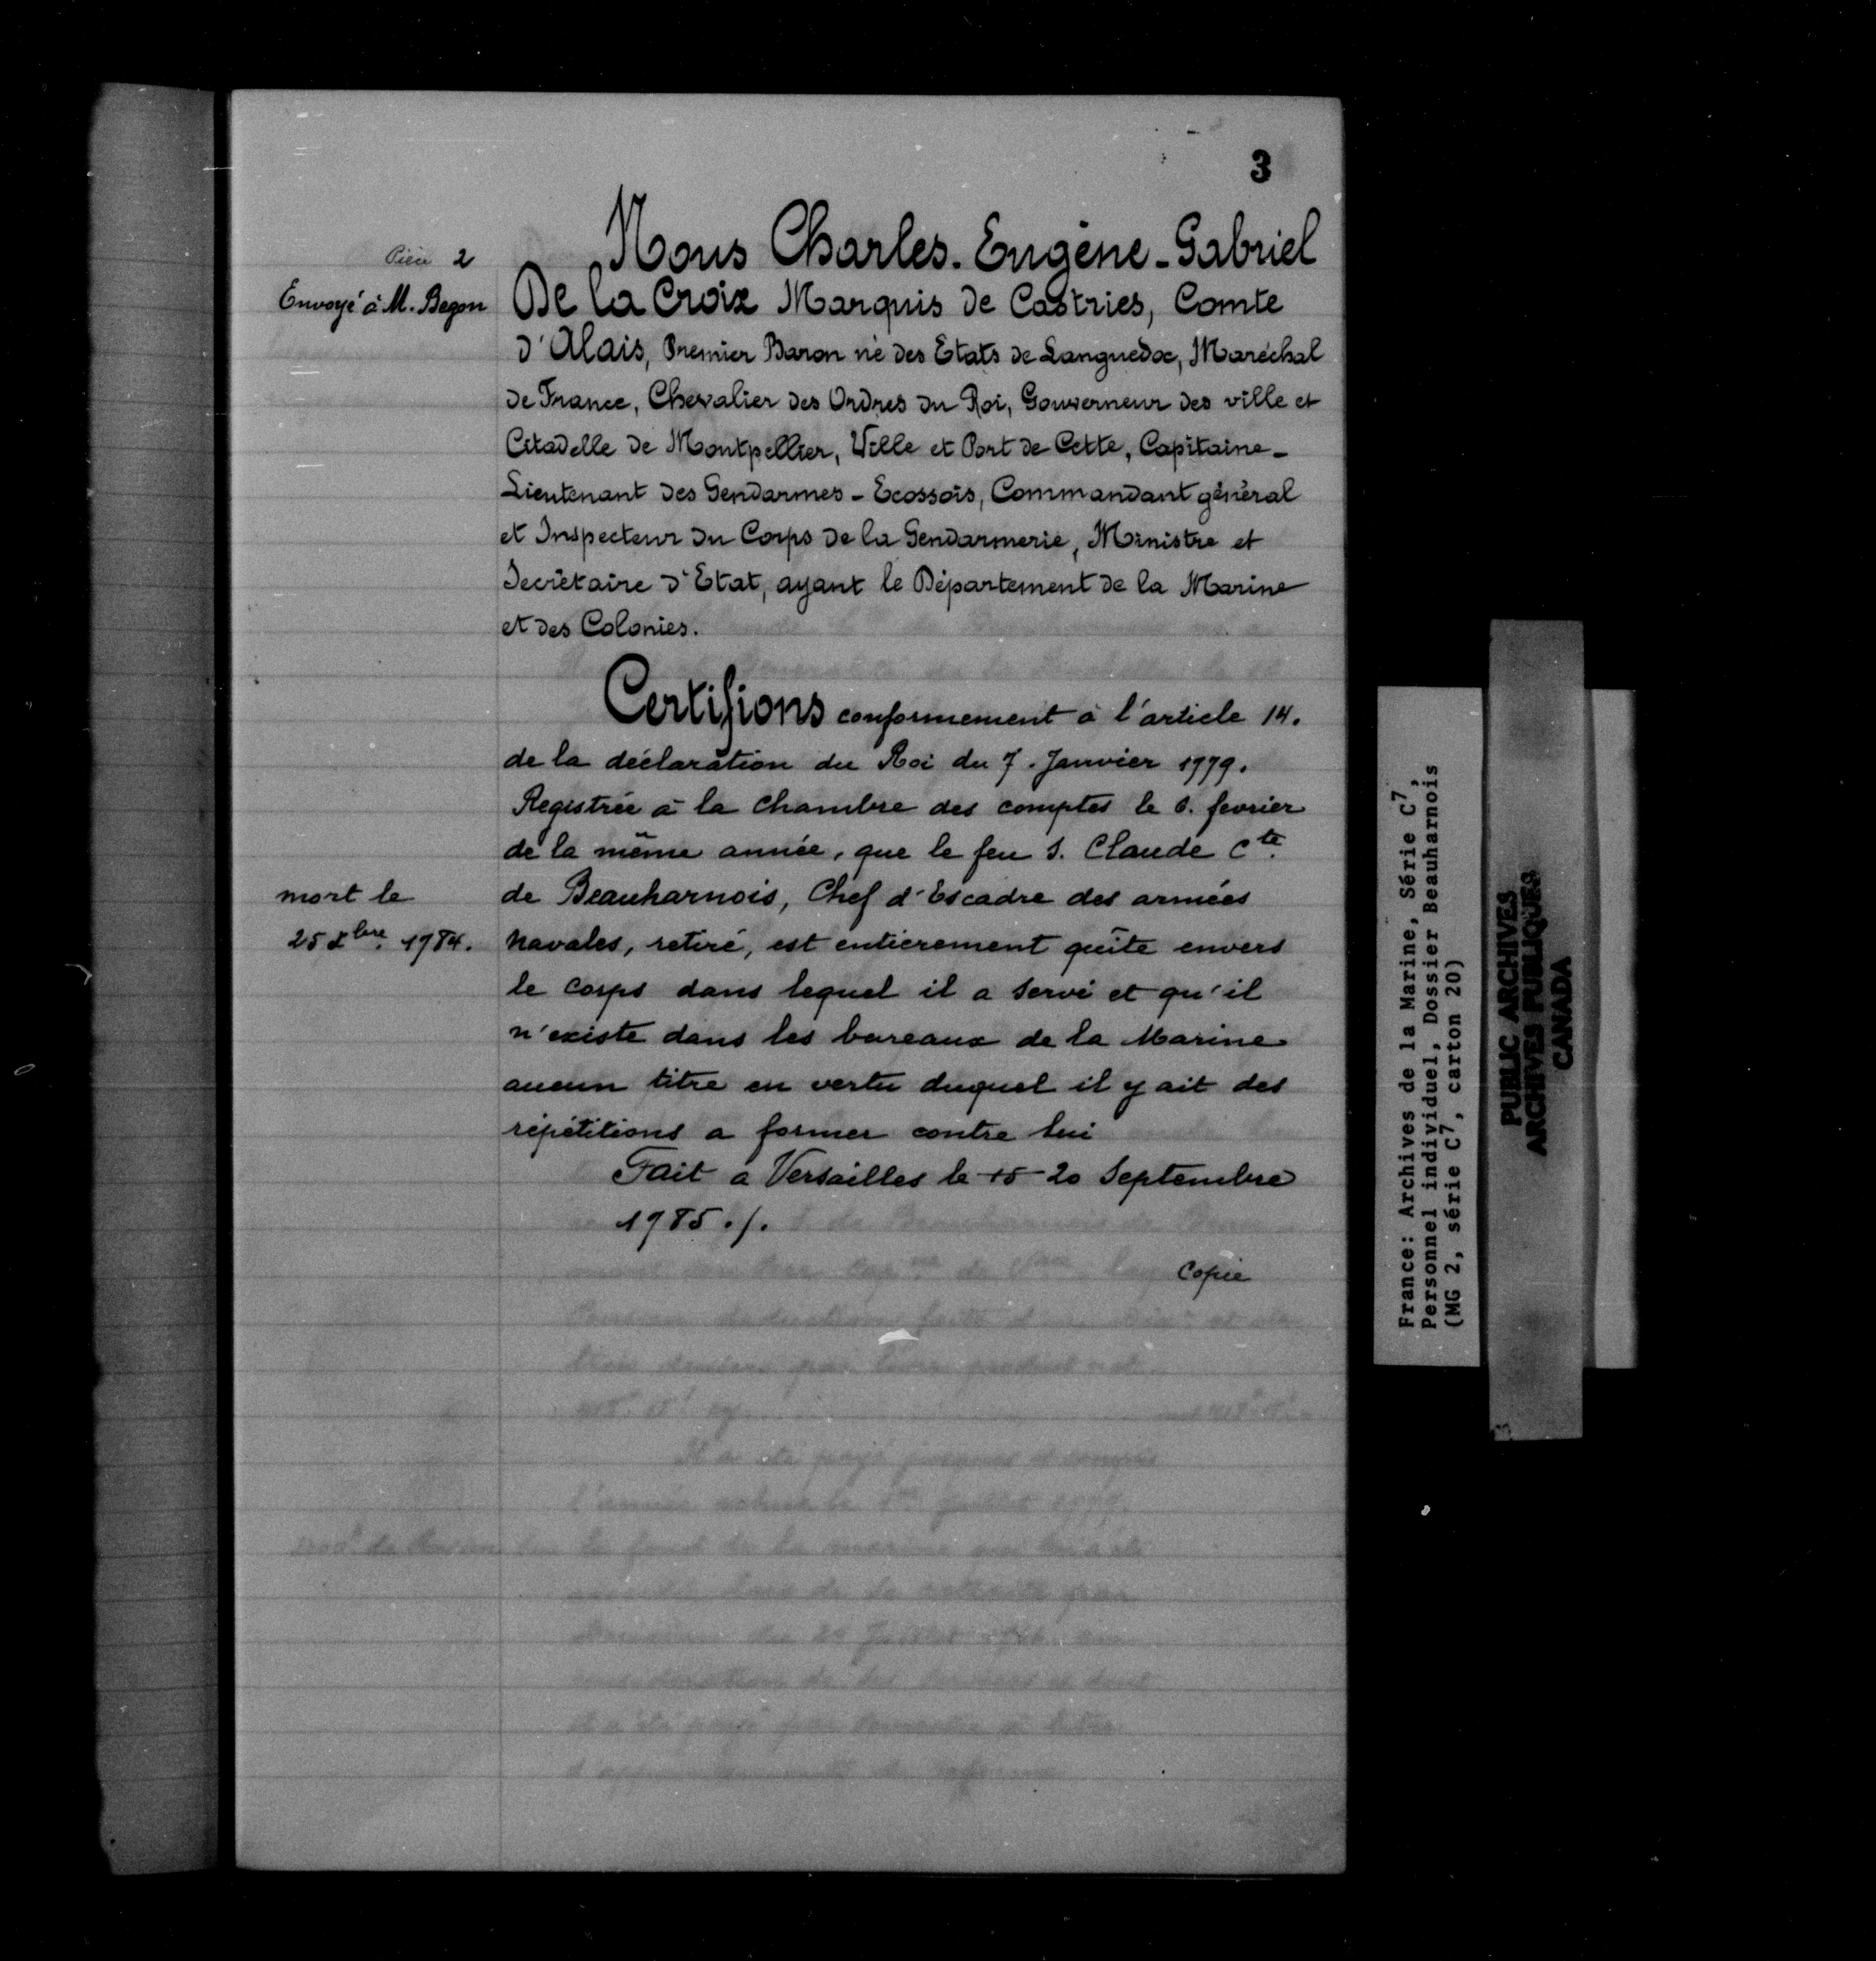 3
Pièce 2
Envoyé à M. Begon
Nous Charles-Eugène-Gabriel
De la Croix Marquis de Castries, Comte
d'Alais, Premier Baron né des Etats de Languedoc, Maréchal
de France, Chevalier des Ordres du Roi, Gouverneur des ville et
Citadelle de Montpellier, Ville et Port de Cette, Capitaine-
Lieutenant des Gendarmes-Ecossois, Commandant général
et Inspecteur du Corps de la Gendarmerie, Ministre et
Secrétaire d'Etat, ayant le Département de la Marine
et des Colonies.
Certifions conformement à l'article 14.
de la déclaration du Roi du 7. Janvier 1779.
Registrée à la Chambre des comptes le 6. fevrier
de la même année, que le feu S. Claude Cte.
de Beauharnois, Chef d'Escadre des armées
navales, retiré, est entièrement quîte envers
le Corps dans lequel il a servi et qu'il
n'existe dans les bureaux de la Marine
aucun titre en vertu duquel il y ait des
répétitions a former contre lui
Fait à Versailles le 15 20 Septembre
1785./.
Copie
mort le
25 Xbre. 1784.
France: Archives de la Marine, Série C7,
Personnel individuel, Dossier Beauharnois
(MG 2, série C7, carton 20)
PUBLIC ARCHIVES
ARCHIVES PUBLIQUES
CANADA